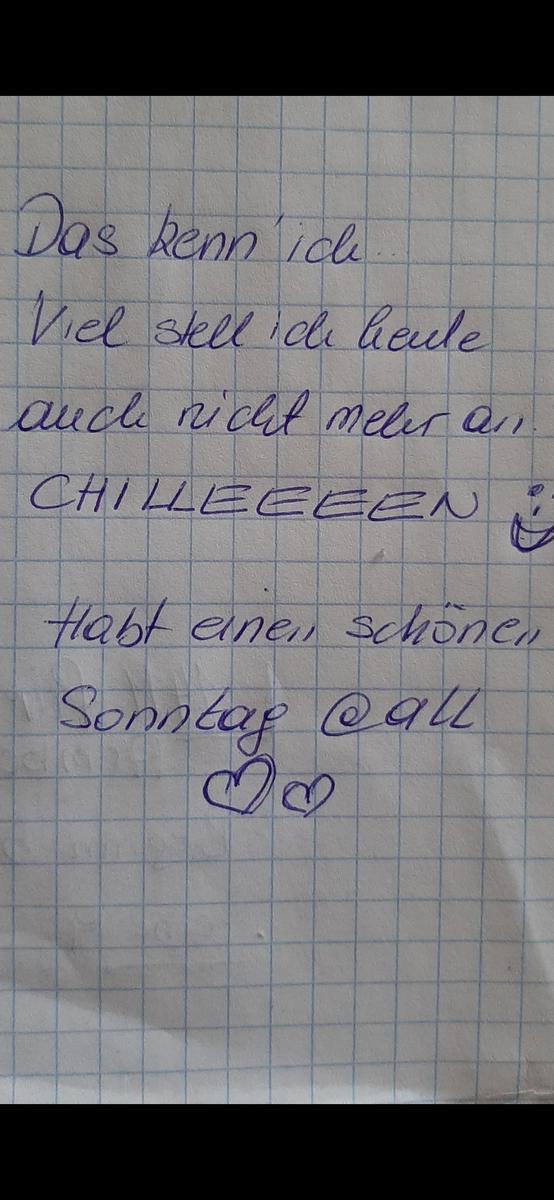 Das kenn' ich...
Viel stell ich heute
auch nicht mehr an.
CHILLEEEEN :)
Habt einen schönen
Sonntag @all
♡♡